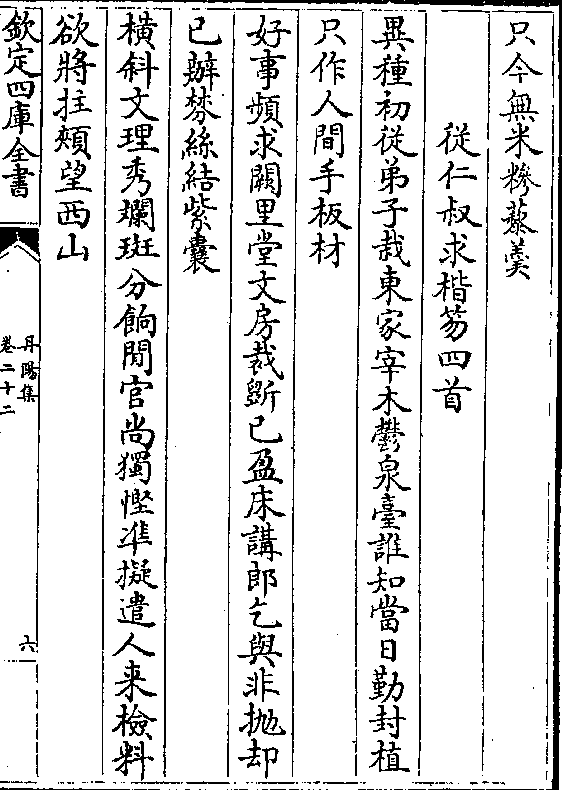 只今無米糝藜羮
從仁叔求楷笏四首
異種初從弟子栽東家宰木鬱泉臺誰知當日勤封植
只作人間手板材
好事頻求闕里堂文房裁㫁已盈床講郎乞與非拋却
已辦棼絲結紫囊
橫斜文理秀斕斑分餉閒官尚獨慳準擬遣人来檢料
欲將拄頰望西山
欽定四庫全書
丹陽集
卷二十二
六